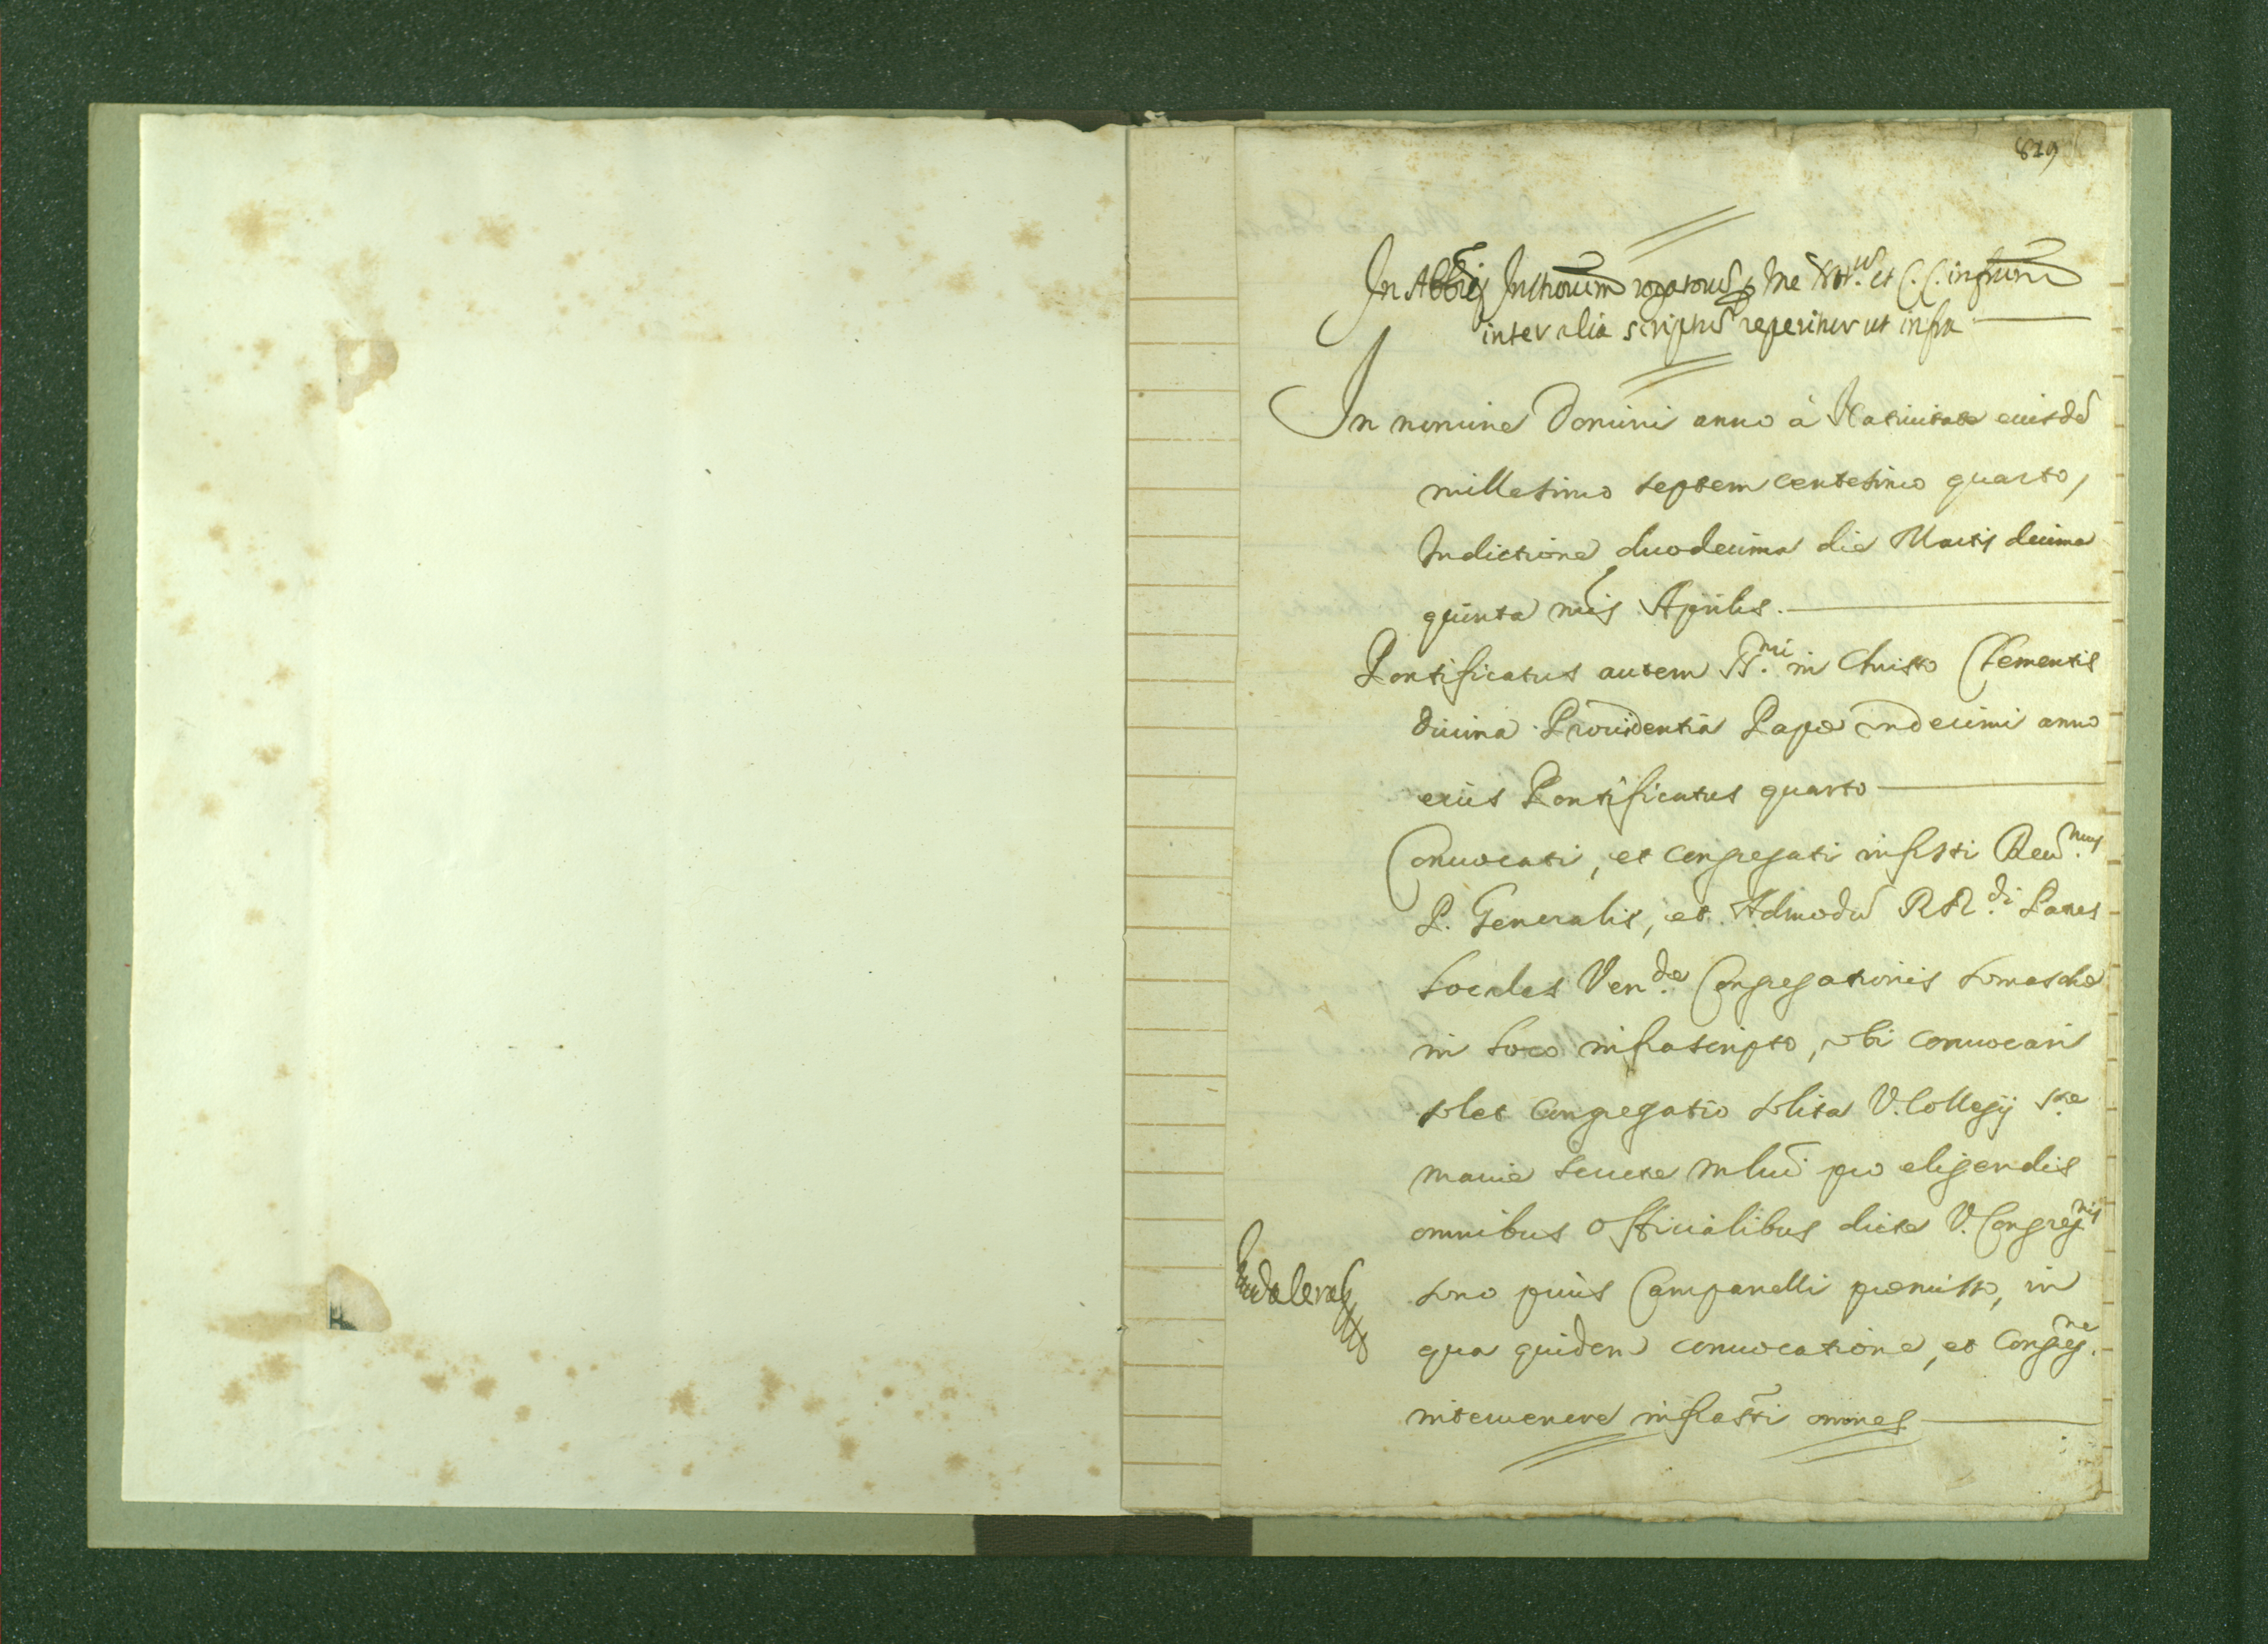 829
In Abbrij Instrorum rogatorus p me Not.us et C.C. infrum
inter alia scriptus reperitur ut infra
In nomine Domini anno à Natiuitate eiusdẽ
millesimo septem centesimo quarto,
Indictione duodecima die Martis decima
quinta mẽis Aprilis.
Pontificatus autem SS.mi in Christo Clementis
diuina Prouidentia Papæ undecimi anno
eius Pontificatus quarto
Conuocati, et congregati infrstti Reu.mus
P. Generalis, et Admodũ RR.di Patres
Sociales Ven.dæ Congregationis Somaschæ
in loco infrascripto, ubi conuocari
solet Congregatio solita V. Collegij S.æ
Mariæ Secretæ Mlni pro eligendis
omnibus Officialibus dictæ V. Congreg.nis
sono prius Campanelli præmisso, in
qua quidem conuocatione, et Congreg.ne
interuenere infrastti omnes